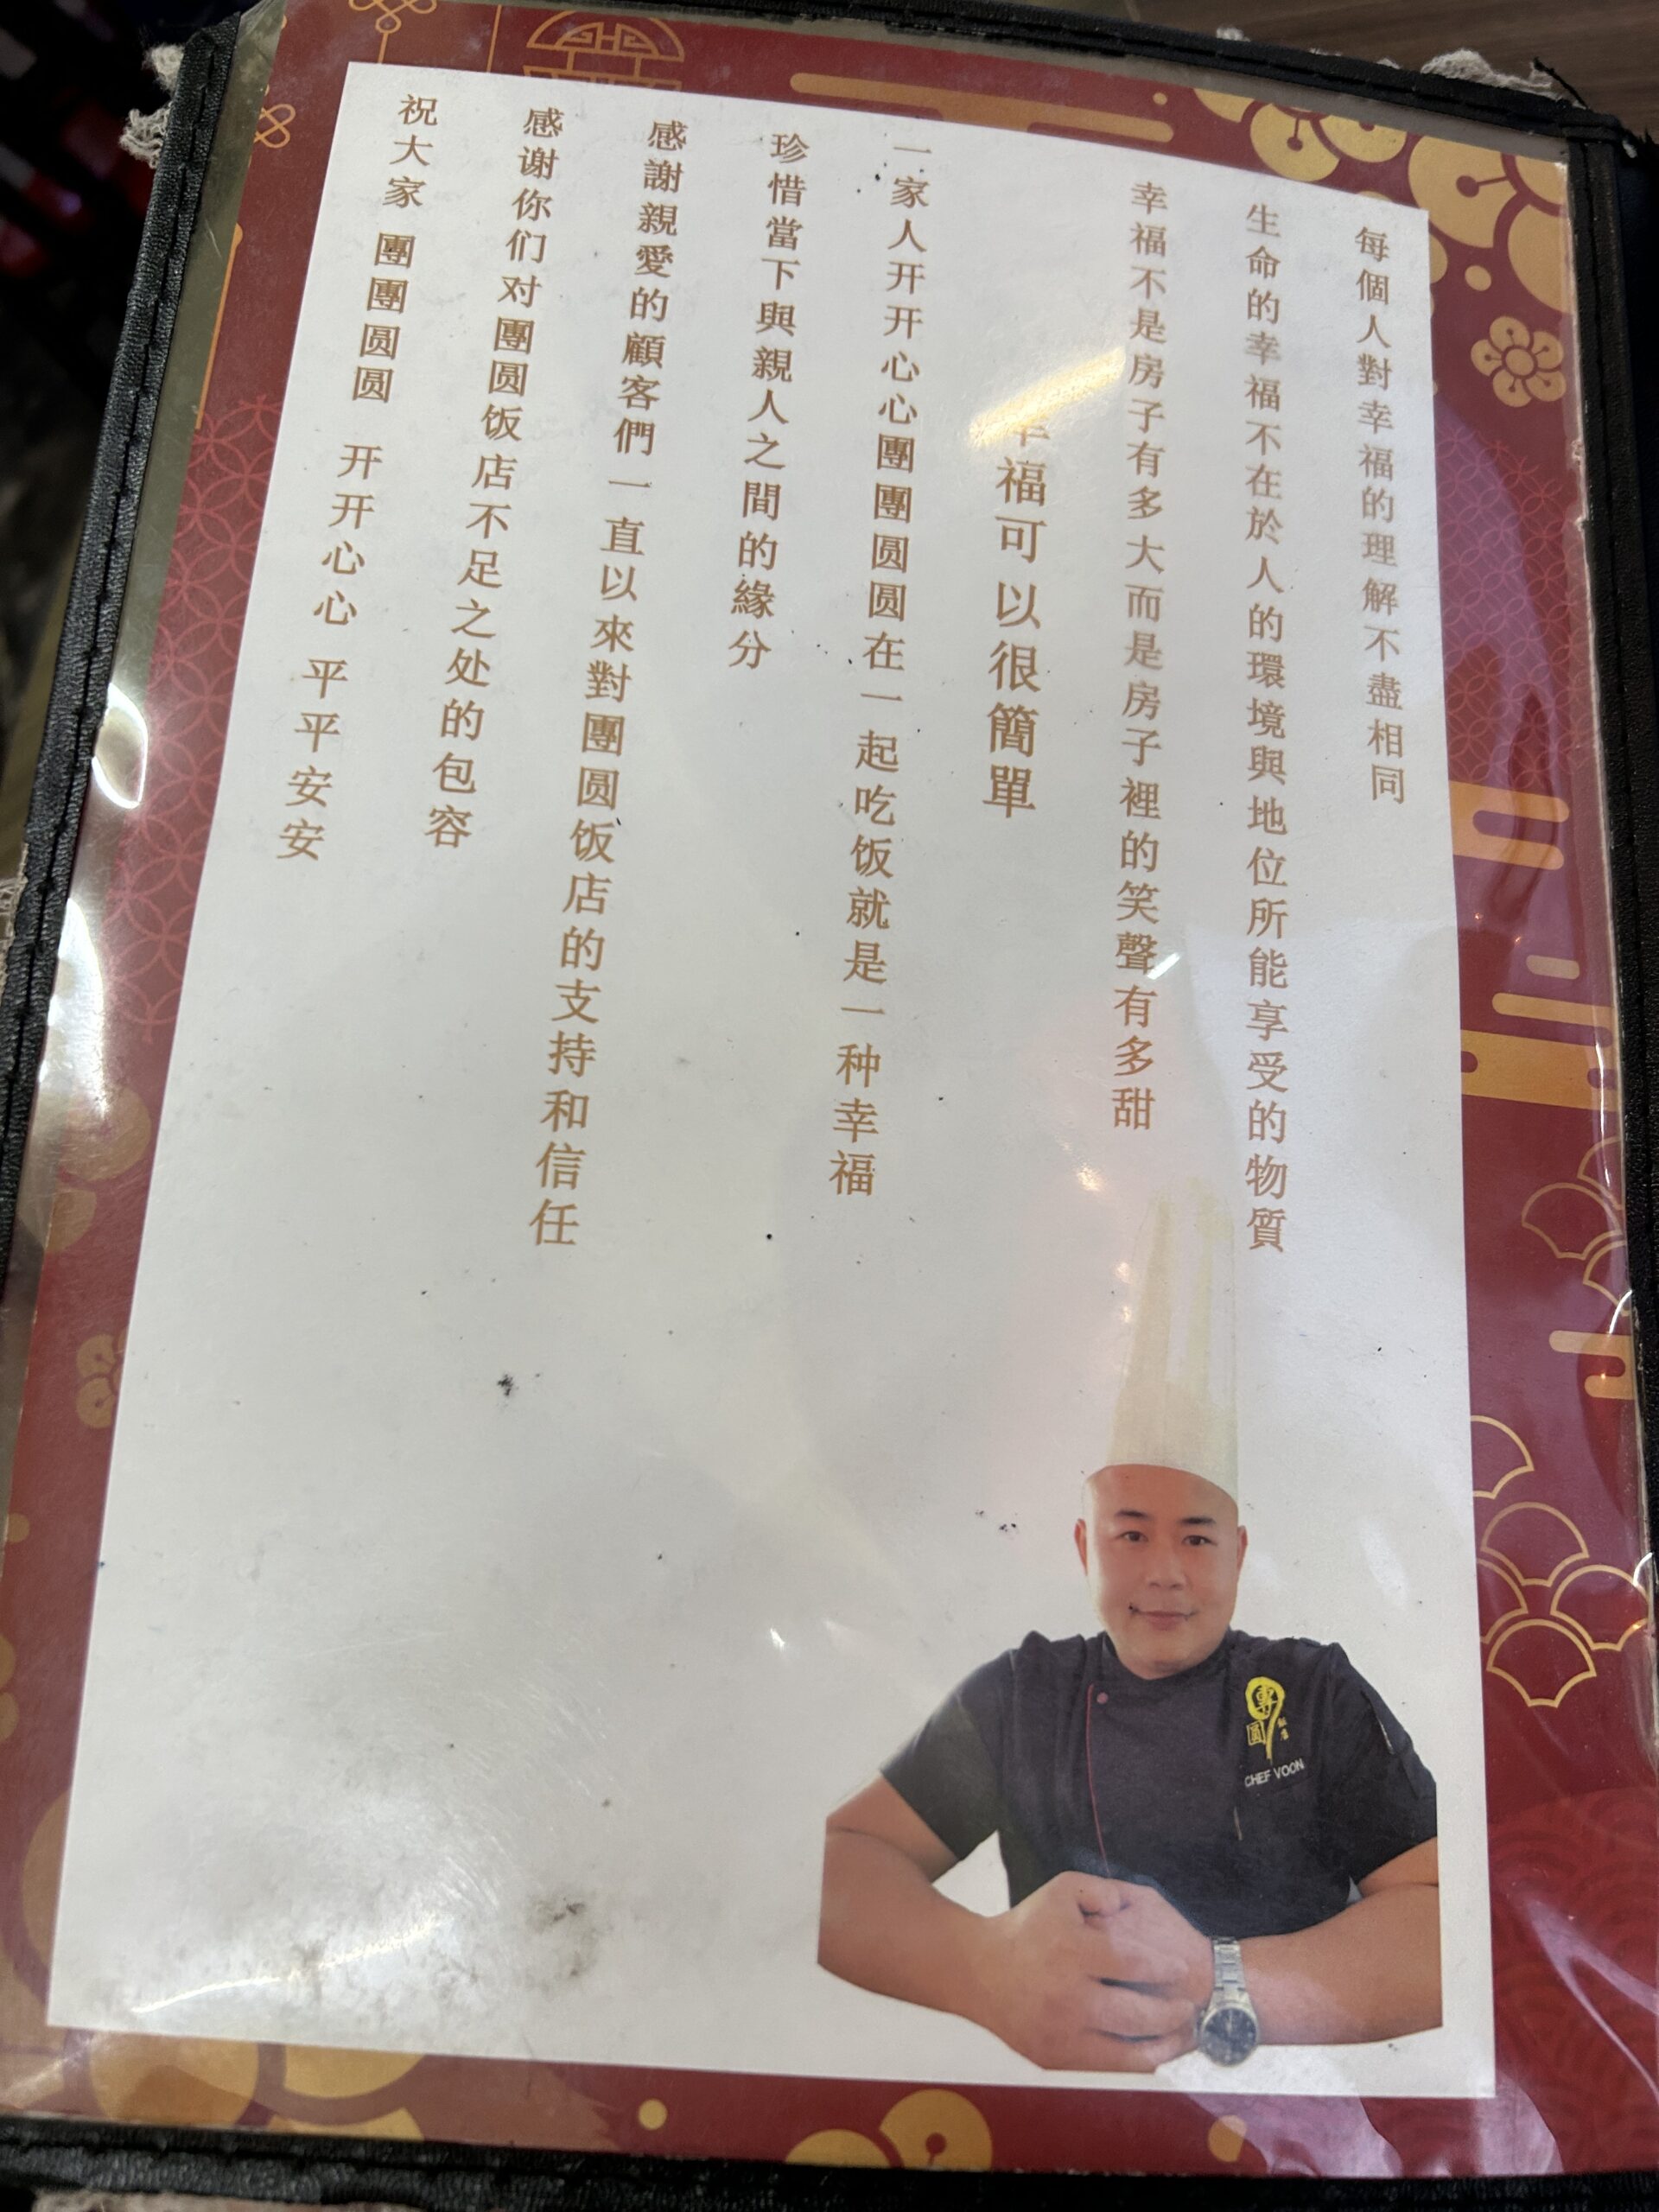 每個人對幸福的理解不盡相同
生命的幸福不在於人的環境與地位所能享受的物質
幸福不是房子有多大而是房子裡的笑聲有多甜
幸福可以很簡單
一家人开开心心團團圆圆在一起吃饭就是一种幸福
珍惜當下與親人之間的緣分
感謝親愛的顧客們一直以來對團圆饭店的支持和信任
感谢你们对團圆饭店不足之处的包容
祝大家 團團圆圆 开开心心 平平安安
團圓
飯店
CHEF VOON